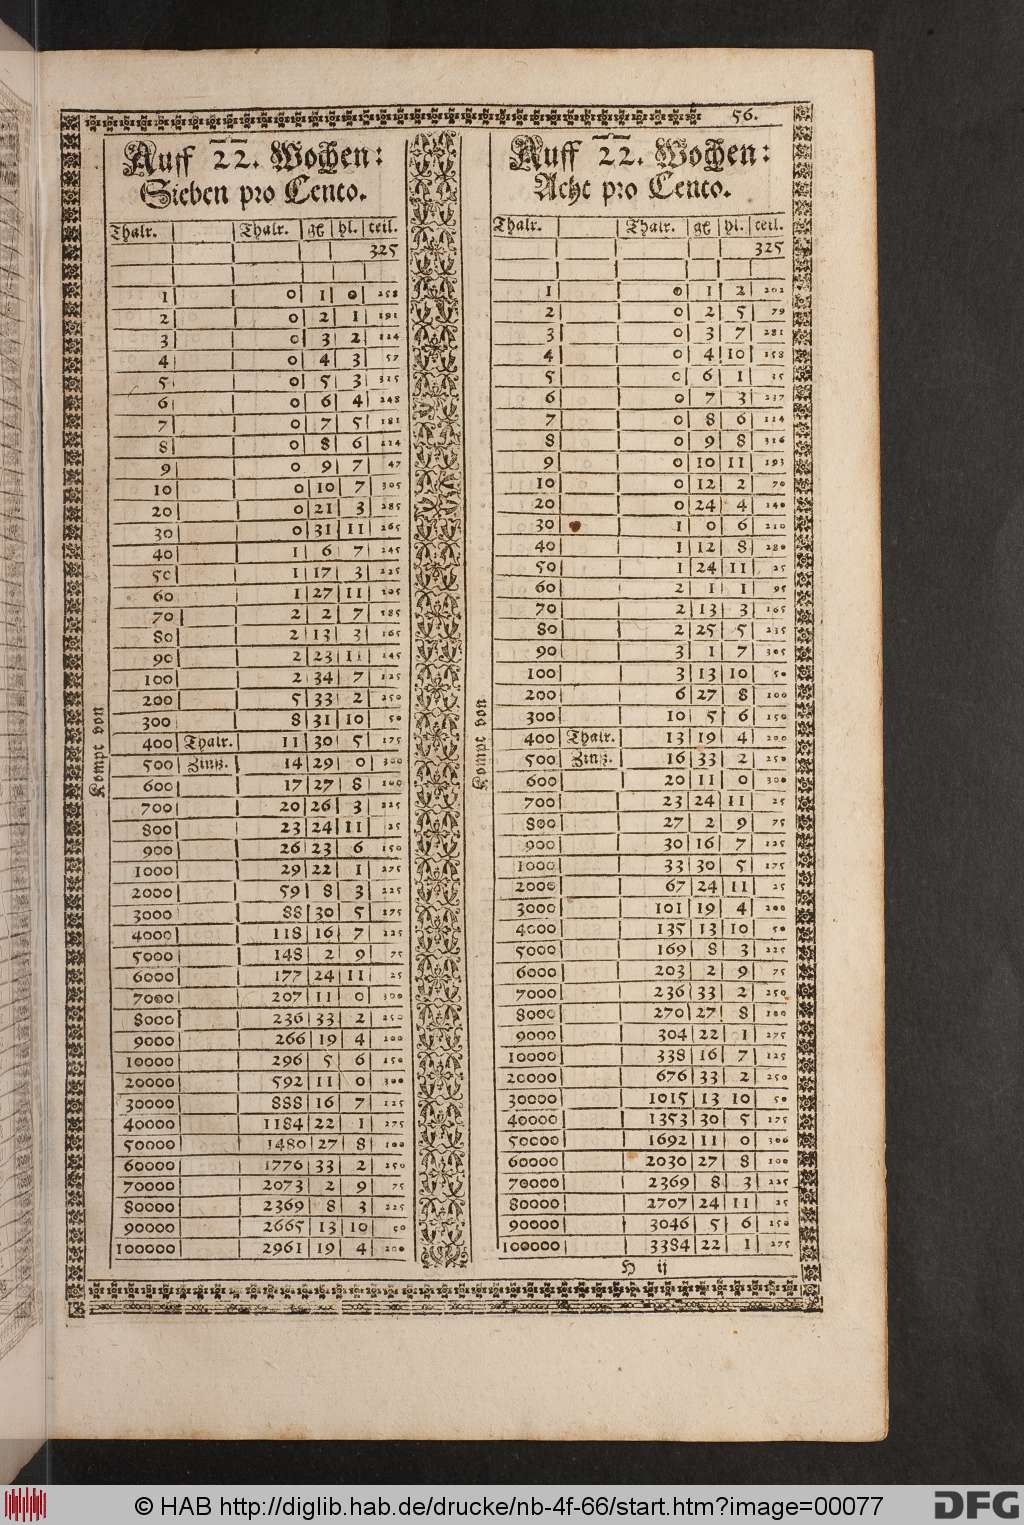 56.
Auff 22. Wochen:
Sieben pro Cento.
Thalr. Thalr. gl hl. teil.
325
1 0 1 0 258
2 0 2 1 191
3 0 3 2 124
4 0 4 3 57
5 0 5 3 315
6 0 6 4 248
7 0 7 5 181
8 0 8 6 114
9 0 9 7 47
10 0 10 7 305
20 0 21 3 285
30 0 31 11 265
40 1 6 7 245
50 1 17 3 225
60 1 27 11 205
70 2 2 7 185
80 2 13 3 165
90 2 23 11 145
100 2 34 7 125
200 5 33 2 250
300 8 31 10 50
400 Thalr. 11 30 5 175
500 Zinß. 14 29 0 300
600 17 27 8 100
700 20 26 3 225
800 23 24 11 25
900 26 23 6 150
1000 29 22 1 275
2000 59 8 3 225
3000 88 30 5 175
4000 118 16 7 225
5000 148 2 9 75
6000 177 24 11 25
7000 207 11 0 300
8000 236 33 2 250
9000 266 19 4 200
10000 296 5 6 150
20000 592 11 0 300
30000 888 16 7 125
40000 1184 22 1 275
50000 1480 27 8 100
60000 1776 33 2 250
70000 2073 2 9 75
80000 2369 8 3 225
90000 2665 13 10 50
100000 2961 19 4 200
Kompt von
Auff 22. Wochen:
Acht pro Cento.
Thalr. Thalr. gl hl. teil.
325
1 0 1 2 202
2 0 2 5 79
3 0 3 7 281
4 0 4 10 158
5 0 6 1 35
6 0 7 3 237
7 0 8 6 114
8 0 9 8 316
9 0 10 11 193
10 0 12 2 70
20 0 24 4 140
30 1 0 6 210
40 1 12 8 280
50 1 24 11 25
60 2 1 1 95
70 2 13 3 165
80 2 25 5 235
90 3 1 7 305
100 3 13 10 50
200 6 27 8 100
300 10 5 6 150
400 Thalr. 13 19 4 200
500 Zinß. 16 33 2 250
600 20 11 0 300
700 23 24 11 25
800 27 2 9 75
900 30 16 7 125
1000 33 30 5 175
2000 67 24 11 25
3000 101 19 4 200
4000 135 13 10 50
5000 169 8 3 225
6000 203 2 9 75
7000 236 33 2 250
8000 270 27 8 100
9000 304 22 1 275
10000 338 16 7 125
20000 676 33 2 250
30000 1015 13 10 50
40000 1353 30 5 175
50000 1692 11 0 300
60000 2030 27 8 100
70000 2369 8 3 225
80000 2707 24 11 25
90000 3046 5 6 150
100000 3384 22 1 275
Kompt von
H ij
© HAB http://diglib.hab.de/drucke/nb-4f-66/start.htm?image=00077
DFG